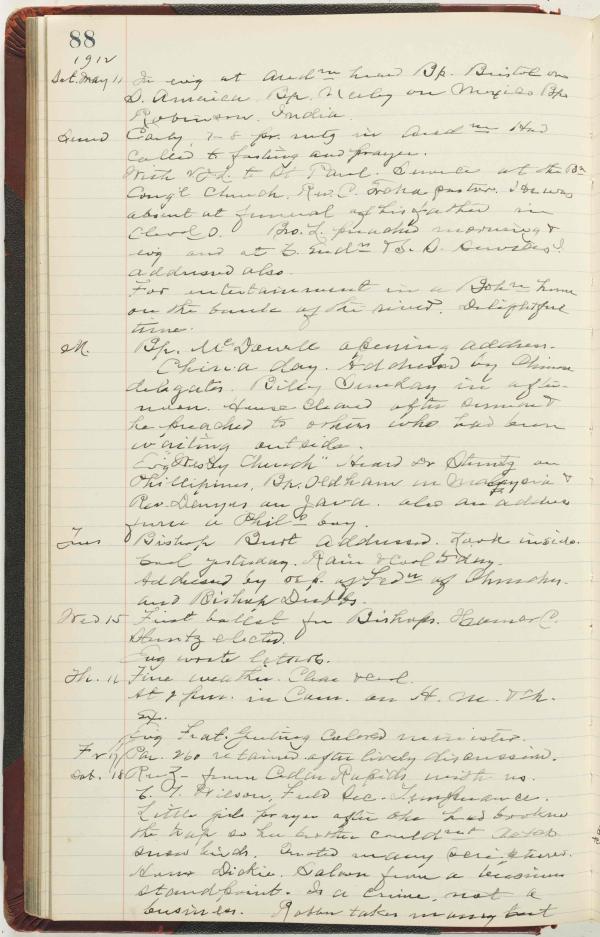 88
1912
Sat. May 11 In evg at Audm heard Bp. Bristol on
S. America Bp. Neely on Mexico Bp
Robinson. India
Sund Early, 7-8 pr. mtg in Audm Had
called to fasting and prayer.
With to St Paul. Service at the Bn
Cong'l Church. Rev. C. pastor. He was
absent at funeral of his father in
Clevel O. Bro. L. preached morning &
evg and at C. End'r & S. S. Services I
addressed also.
For entertainment in a Bohn home
on the bank of the river. Delightful
time.
M. Bp. McDowell opening address.
China day. Addressed by Chinese
delegates. Billy Sunday in after-
noon. House cleared after sermon &
he preached to others who had been
waiting outside.
Evg "Wesley Church" Heard Dr Stuntz on
Phillipines, Bp. Oldham on Malaysia &
Rev. Denyes on Java. also an address
from a Phile boy.
Tues Bishop Burt addressed. Look inside.
Cool yesterday. Rain & cool today.
Address by rep. of Fedn of Churches.
and Bishop Dubbs.
Wed 15 First ballot for Bishops. Homer C.
Stuntz elected.
Evg wrote letters.
Th. 16 Fine weather. Clear & cool.
At 2 p.m. in Com. on H. M. & Ch.
Ex.
Evg Frat. Greeting Colored minister.
Fr 17 Par. 260 retained after lively discussion.
Sat. 18 from Cedar Rapids with us.
C. T. Wilson, Field Sec. Temperance.
Little girls prayer after she had broken
the trap so her brother couldnt catch
snow birds. Quoted many scriptures.
Dickie. Saloon from a business
standpoint. Is a crime, not a
business. Robber takes money but